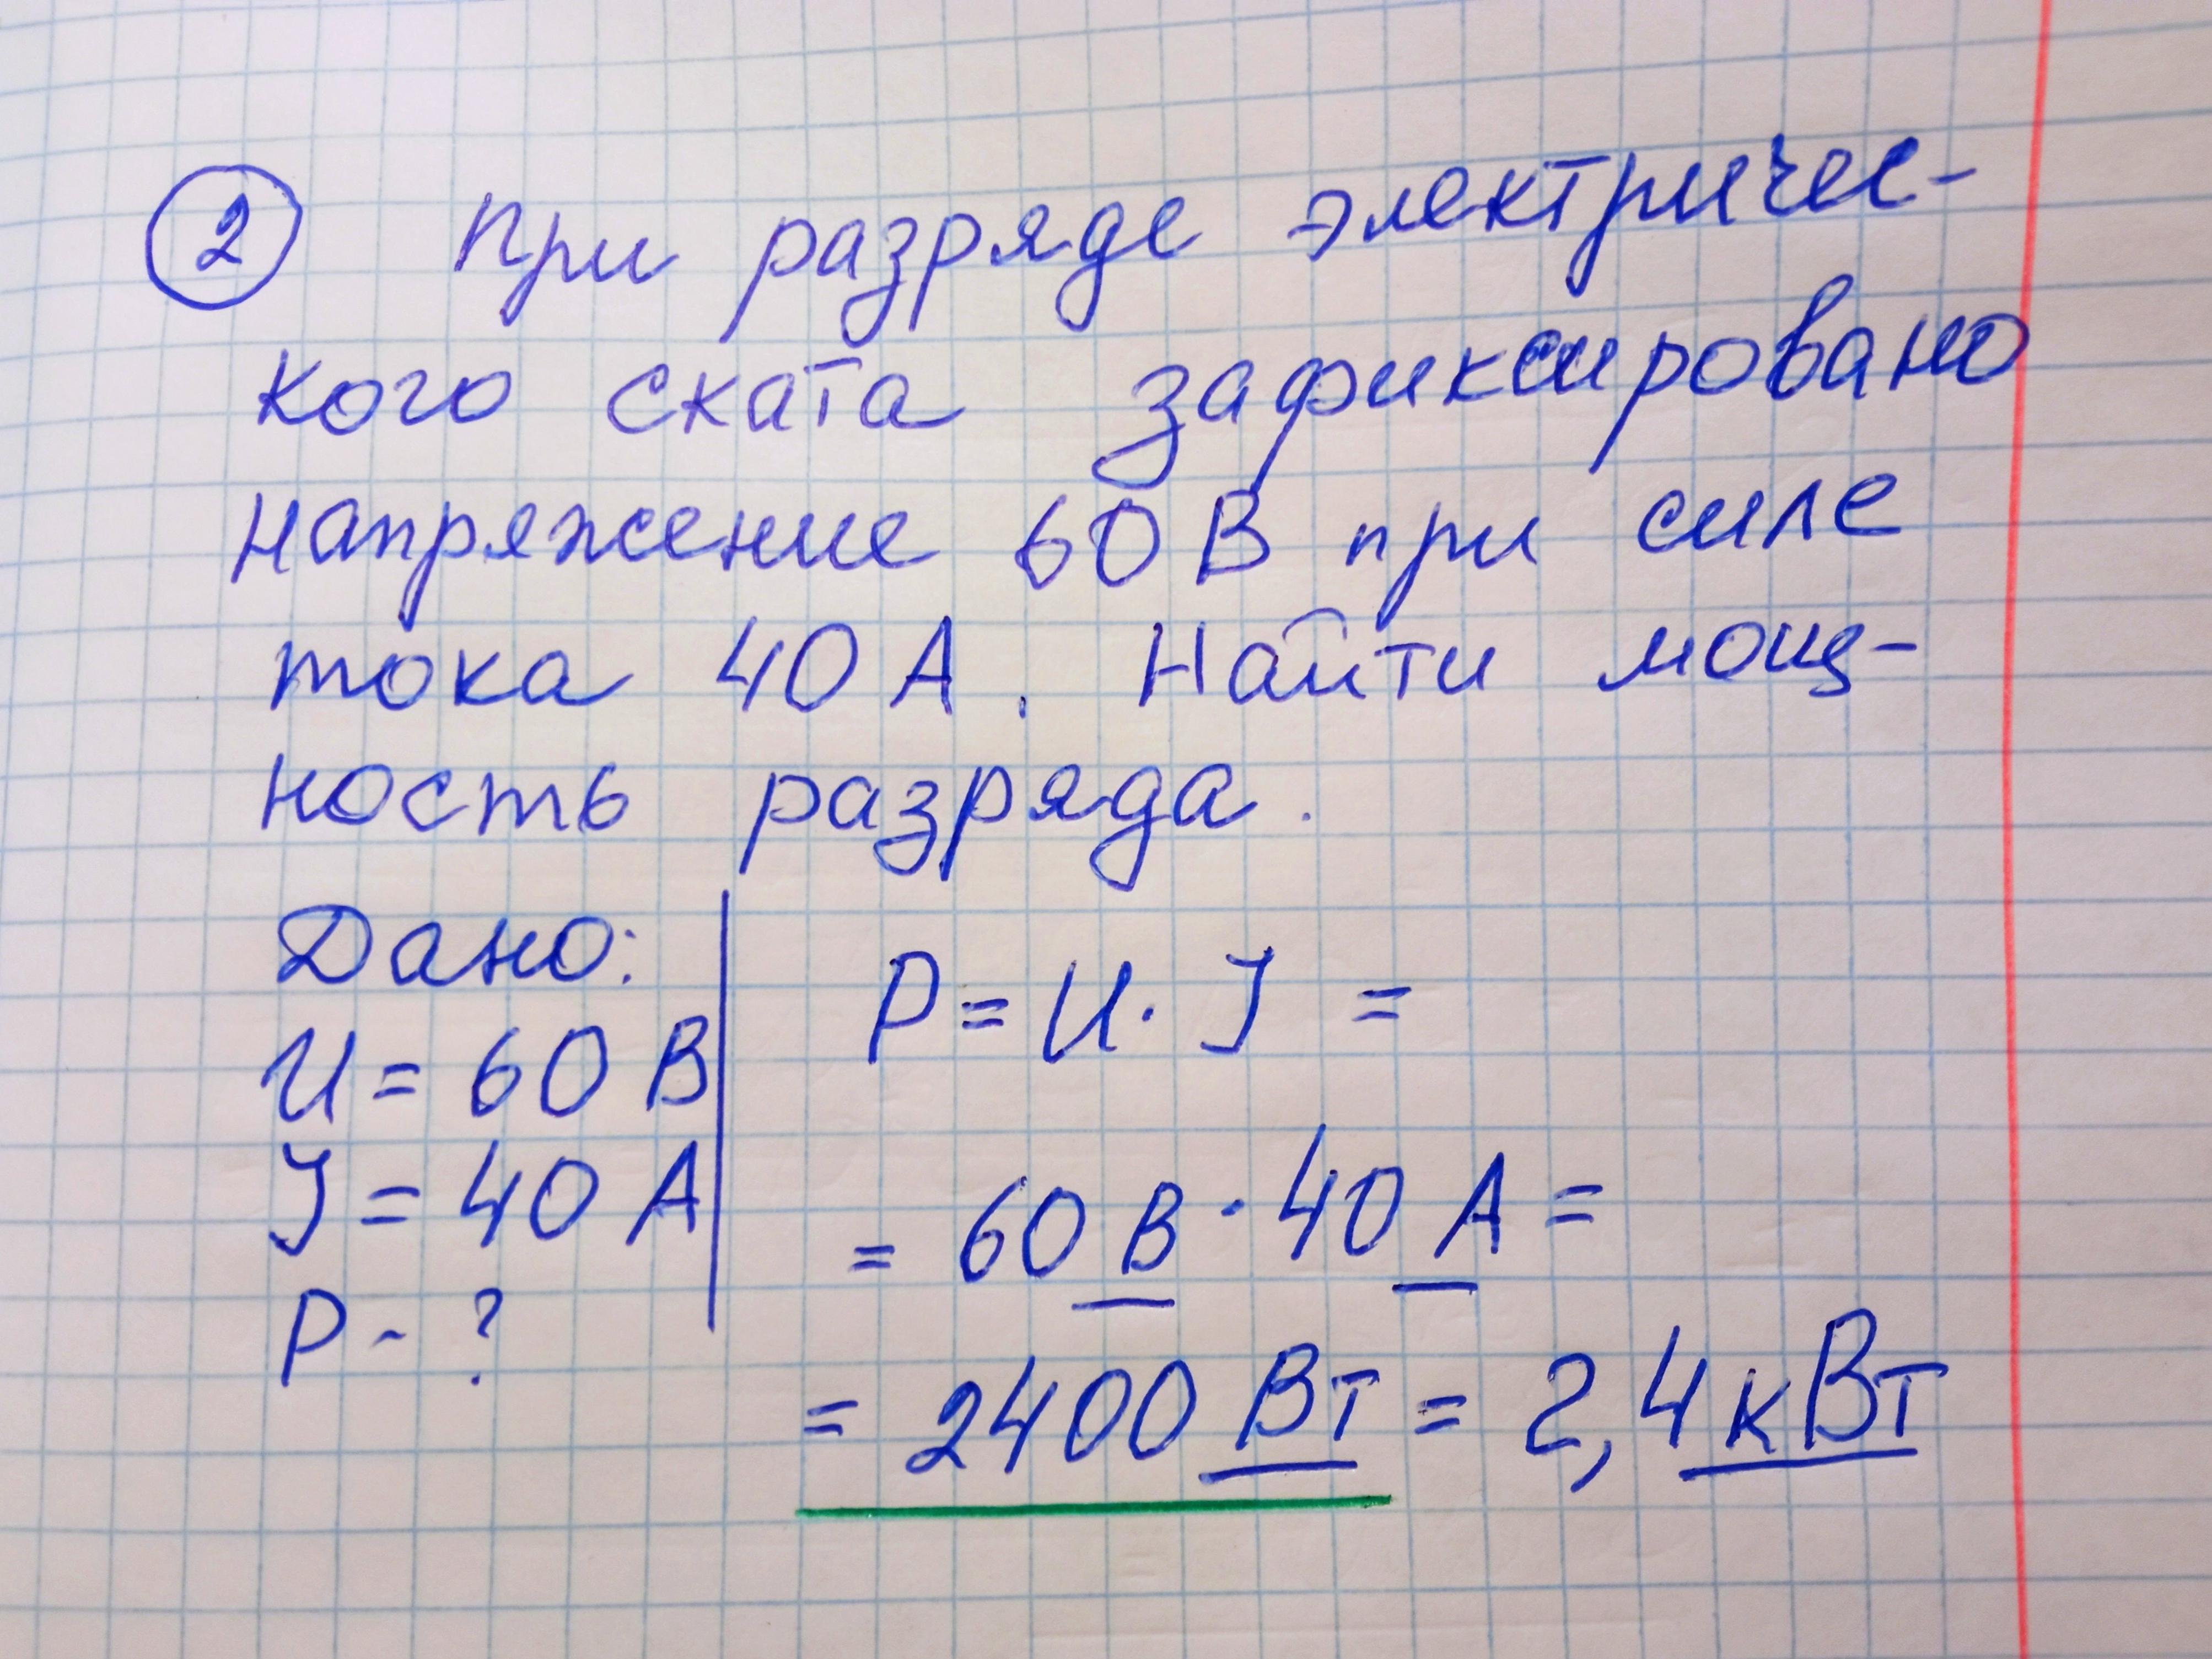 2 При разряде электричес-
кого ската зафиксировано
напряжение 60 В при силе
тока 40 А. Найти мощ-
ность разряда.
Дано:
U = 60 В
J = 40 А
P - ?
P = U · J =
= 60 В · 40 А =
= 2400 Вт = 2,4 кВт